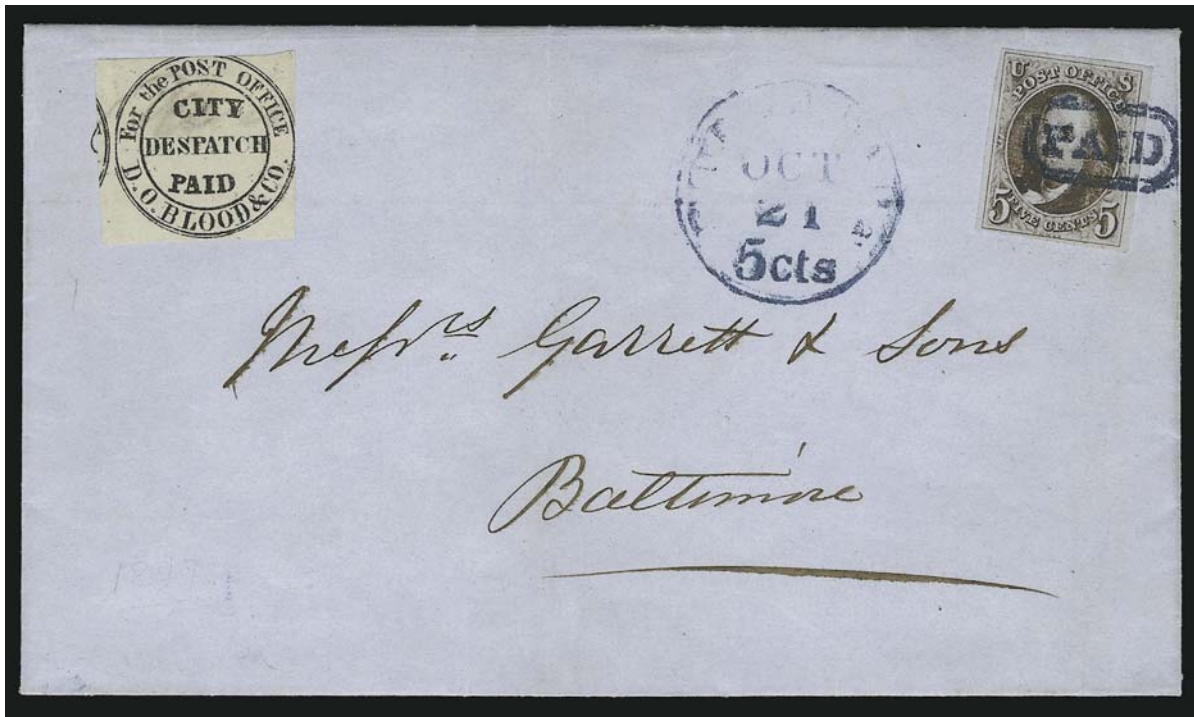 For the POST OFFICE
CITY
DESPATCH
PAID
D.O. BLOOD & CO.
OCT
21
5cts
U S
POST OFFICE
PAID
5 FIVE CENTS 5
Messrs Garrett & Sons
Baltimore
1847